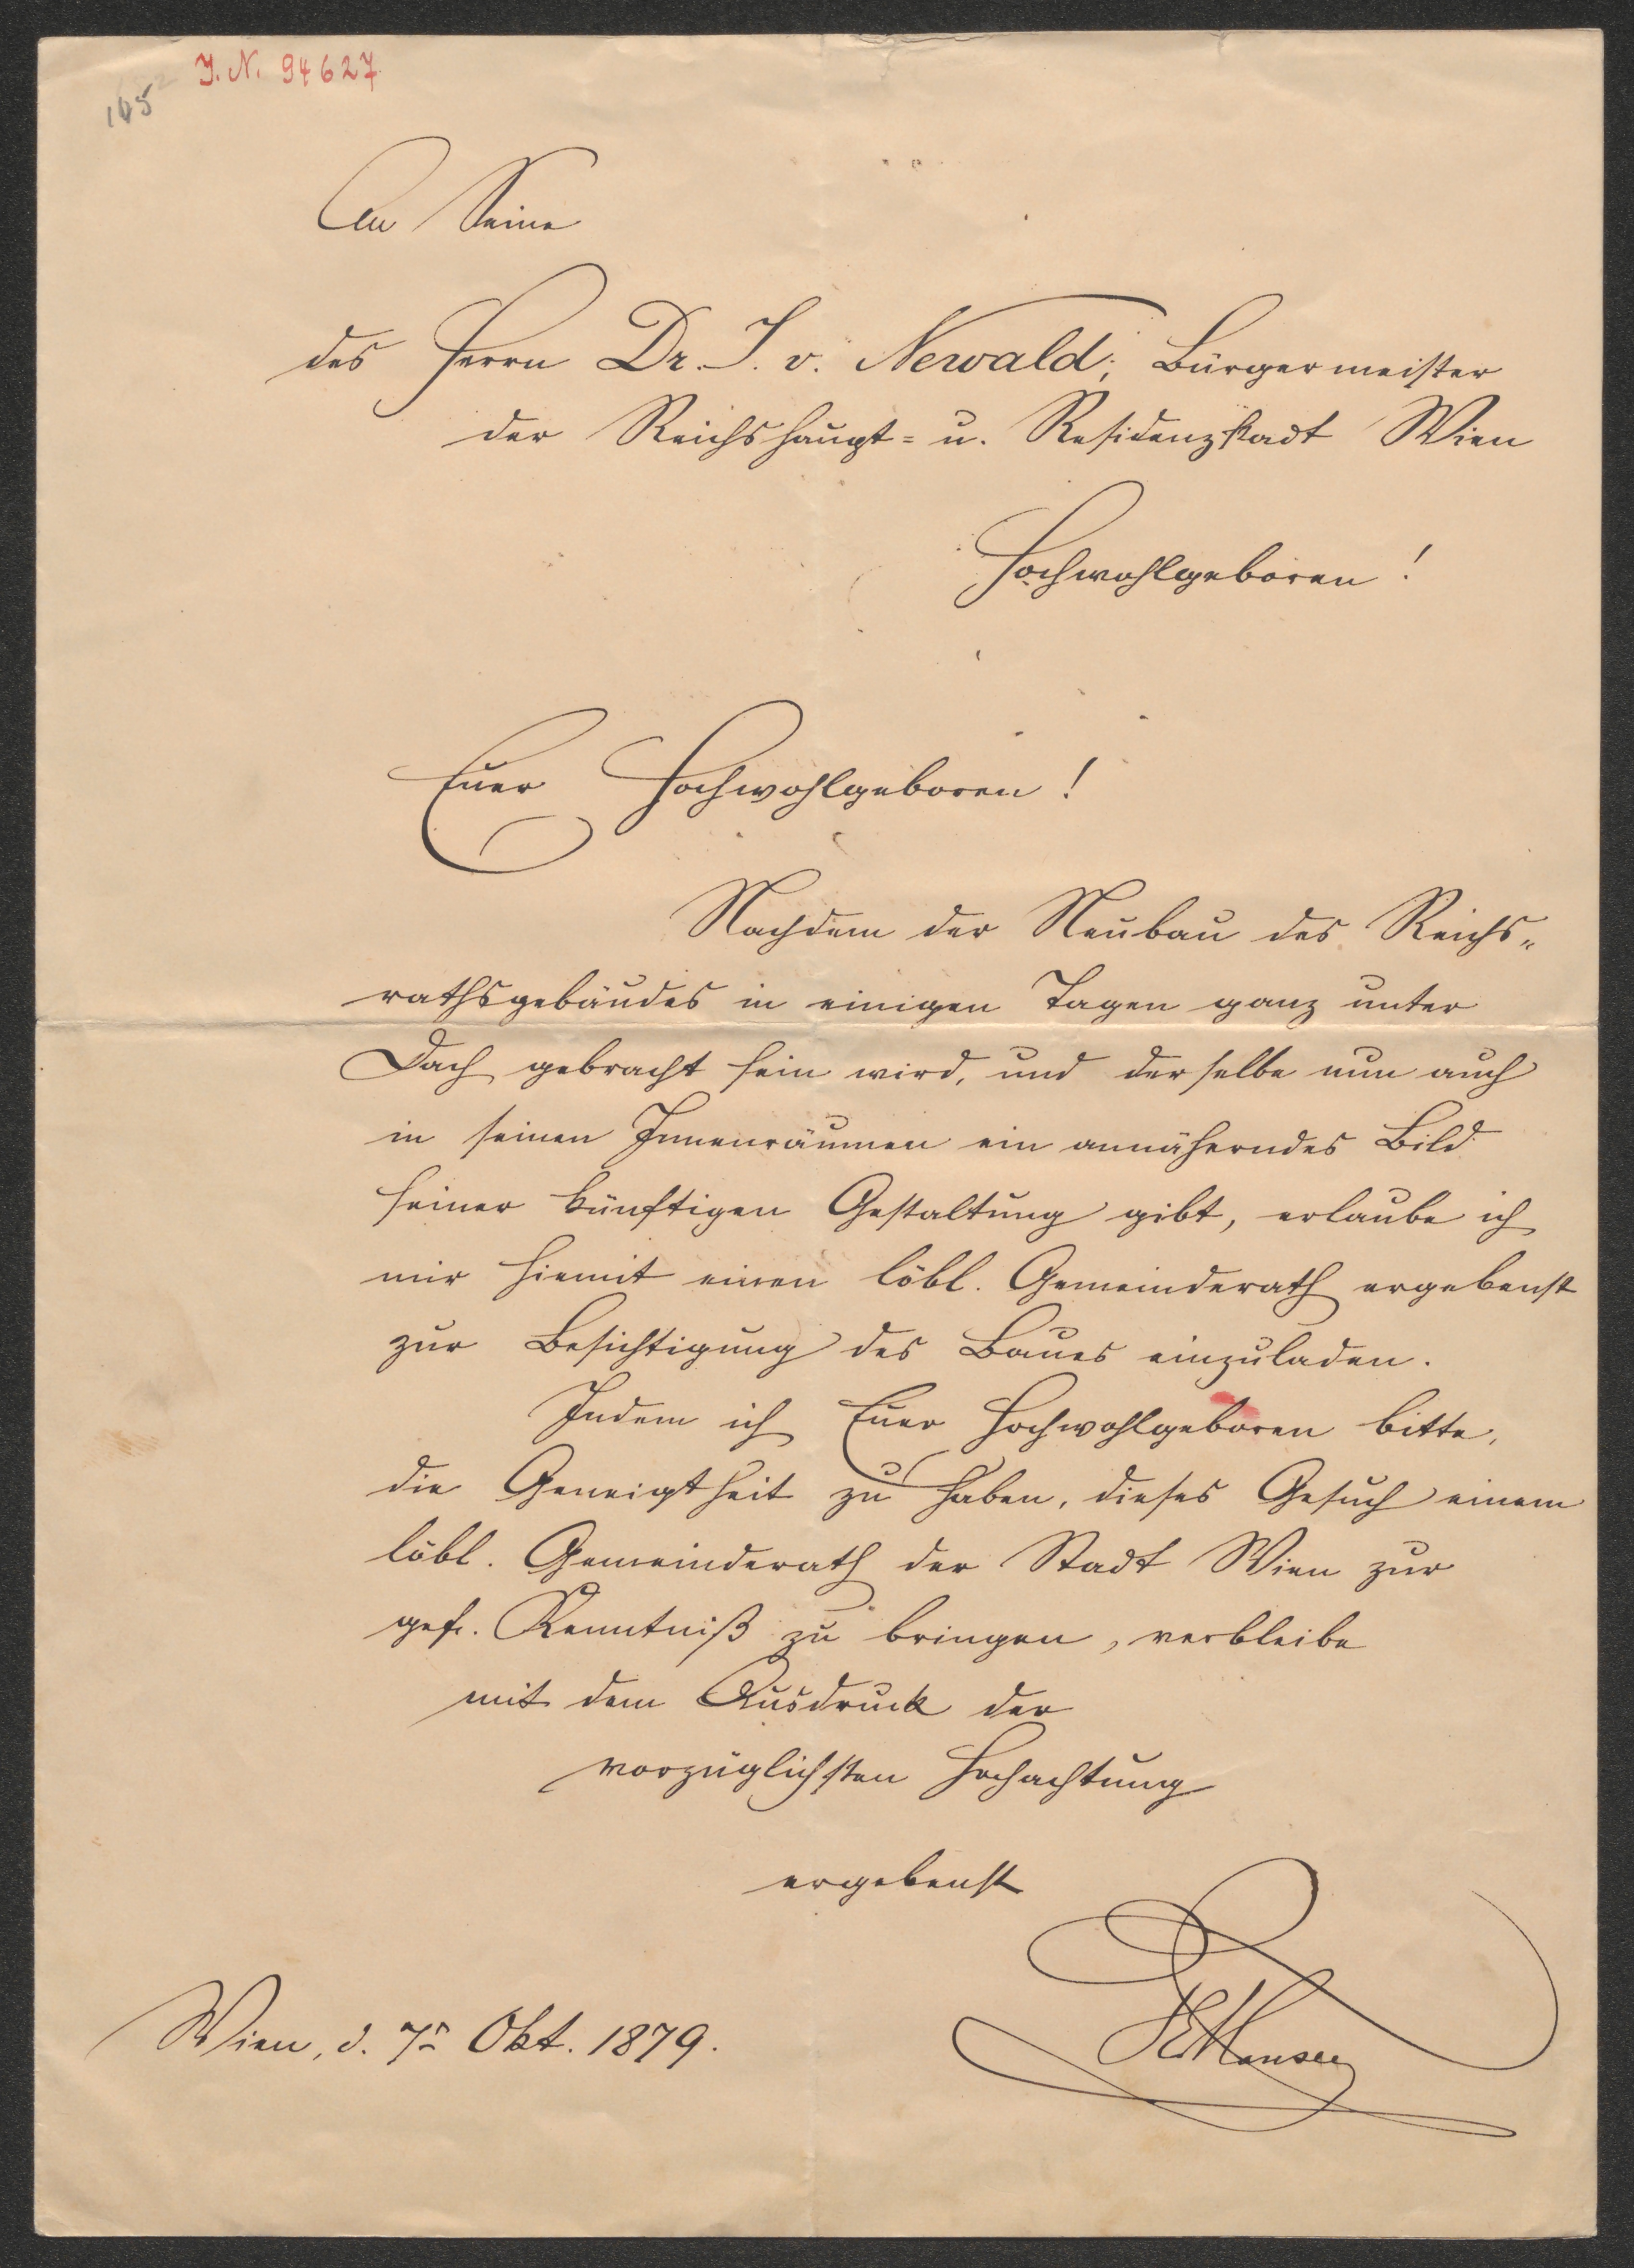 J. N. 94627
105
An Seine
des Herrn Dr. J. v. Newald, Bürgermeister
der Reichshaupt= u. Residenzstadt Wien
Hochwohlgeboren!
Euer Hochwohlgeboren!
Nachdem der Neubau des Reichs„
rathsgebäudes in einigen Tagen ganz unter
Dach gebracht sein wird, und derselbe nun auch
in seinen Innenräumen ein annäherndes Bild
seiner künftigen Gestaltung gibt, erlaube ich
mir hiemit einen löbl. Gemeinderath ergebenst
zur Besichtigung des Baues einzuladen.
Indem ich Euer Hochwohlgeboren bitte,
die Geneigtheit zu haben, dieses Gesuch einem
löbl. Gemeinderath der Stadt Wien zur
gef. Kenntniß zu bringen, verbleibe
mit dem Ausdruck der
vorzüglichsten Hochachtung
ergebenst
Hansen
Wien, d. 7ⁿ Okt. 1879.